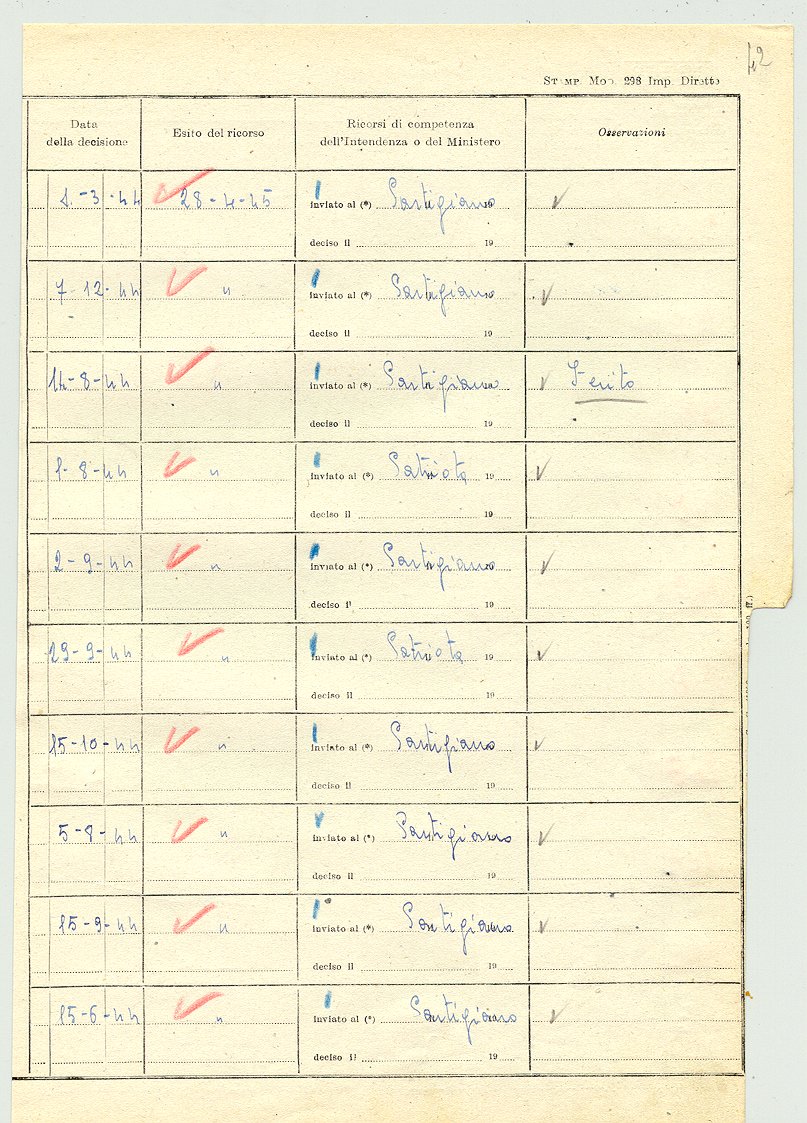 42
STAMP. MOD. 298 Imp. Dirette
Data della decisione Esito del ricorso Ricorsi di competenza dell'Intendenza o del Ministero Osservazioni
1-3-44 28-4-45 inviato al (*) Partigiano 19
deciso il 19
7-12-44 " inviato al (*) Partigiano
deciso il 19
14-8-44 " inviato al (*) Partigiano Ferito
deciso il 19
1-8-44 " inviato al (*) Patriota 19
deciso il 19
2-9-44 " inviato al (*) Partigiano 19
deciso il 19
29-9-44 " inviato al (*) Patriota 19
deciso il 19
15-10-44 " inviato al (*) Partigiano
deciso il 19
5-8-44 " inviato al (*) Partigiano
deciso il 19
15-9-44 " inviato al (*) Partigiano
deciso il 19
15-6-44 " inviato al (*) Partigiano
deciso il 19